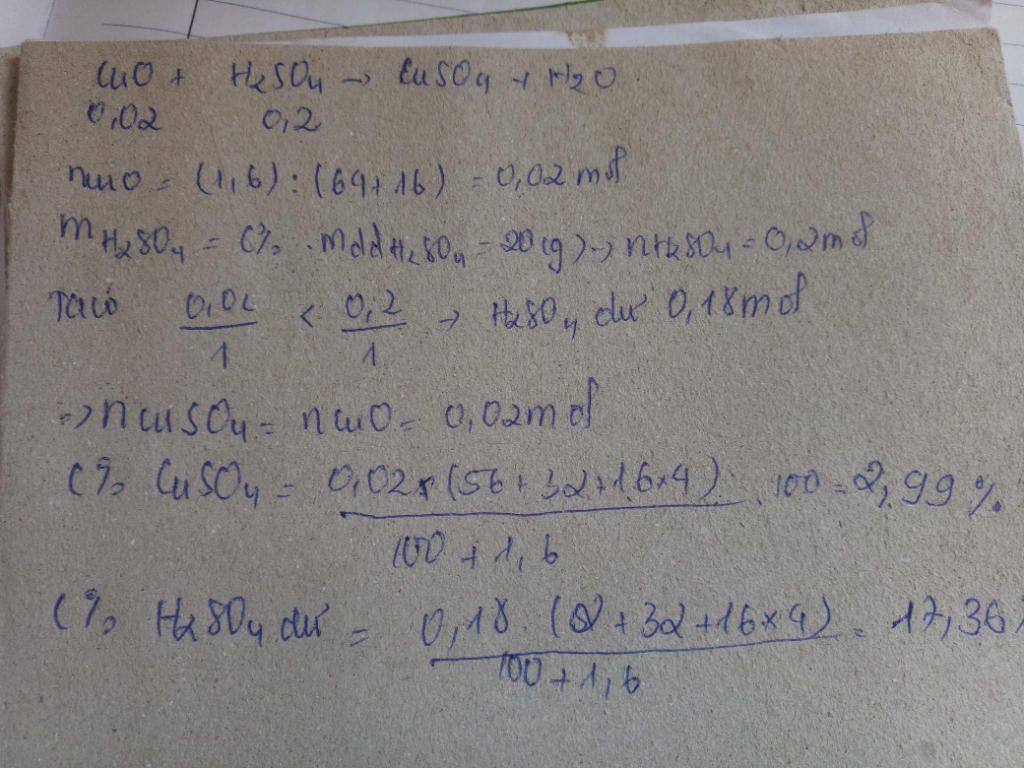 CuO + H2SO4 → CuSO4 + H2O
0,02 0,2
nCuO = (1,6) : (64+16) = 0,02 mol
mH2SO4 = C% . mddH2SO4 = 20(g) → nH2SO4 = 0,2 mol
Ta có 0,02/1 < 0,2/1 → H2SO4 dư 0,18 mol
=> nCuSO4 = nCuO = 0,02 mol
C% CuSO4 = 0,02 × (56 + 32 + 16×4) / 100 + 1,6 . 100 = 2,99 %
C% H2SO4 dư = 0,18 . (2 + 32 + 16×4) / 100 + 1,6 = 17,36%